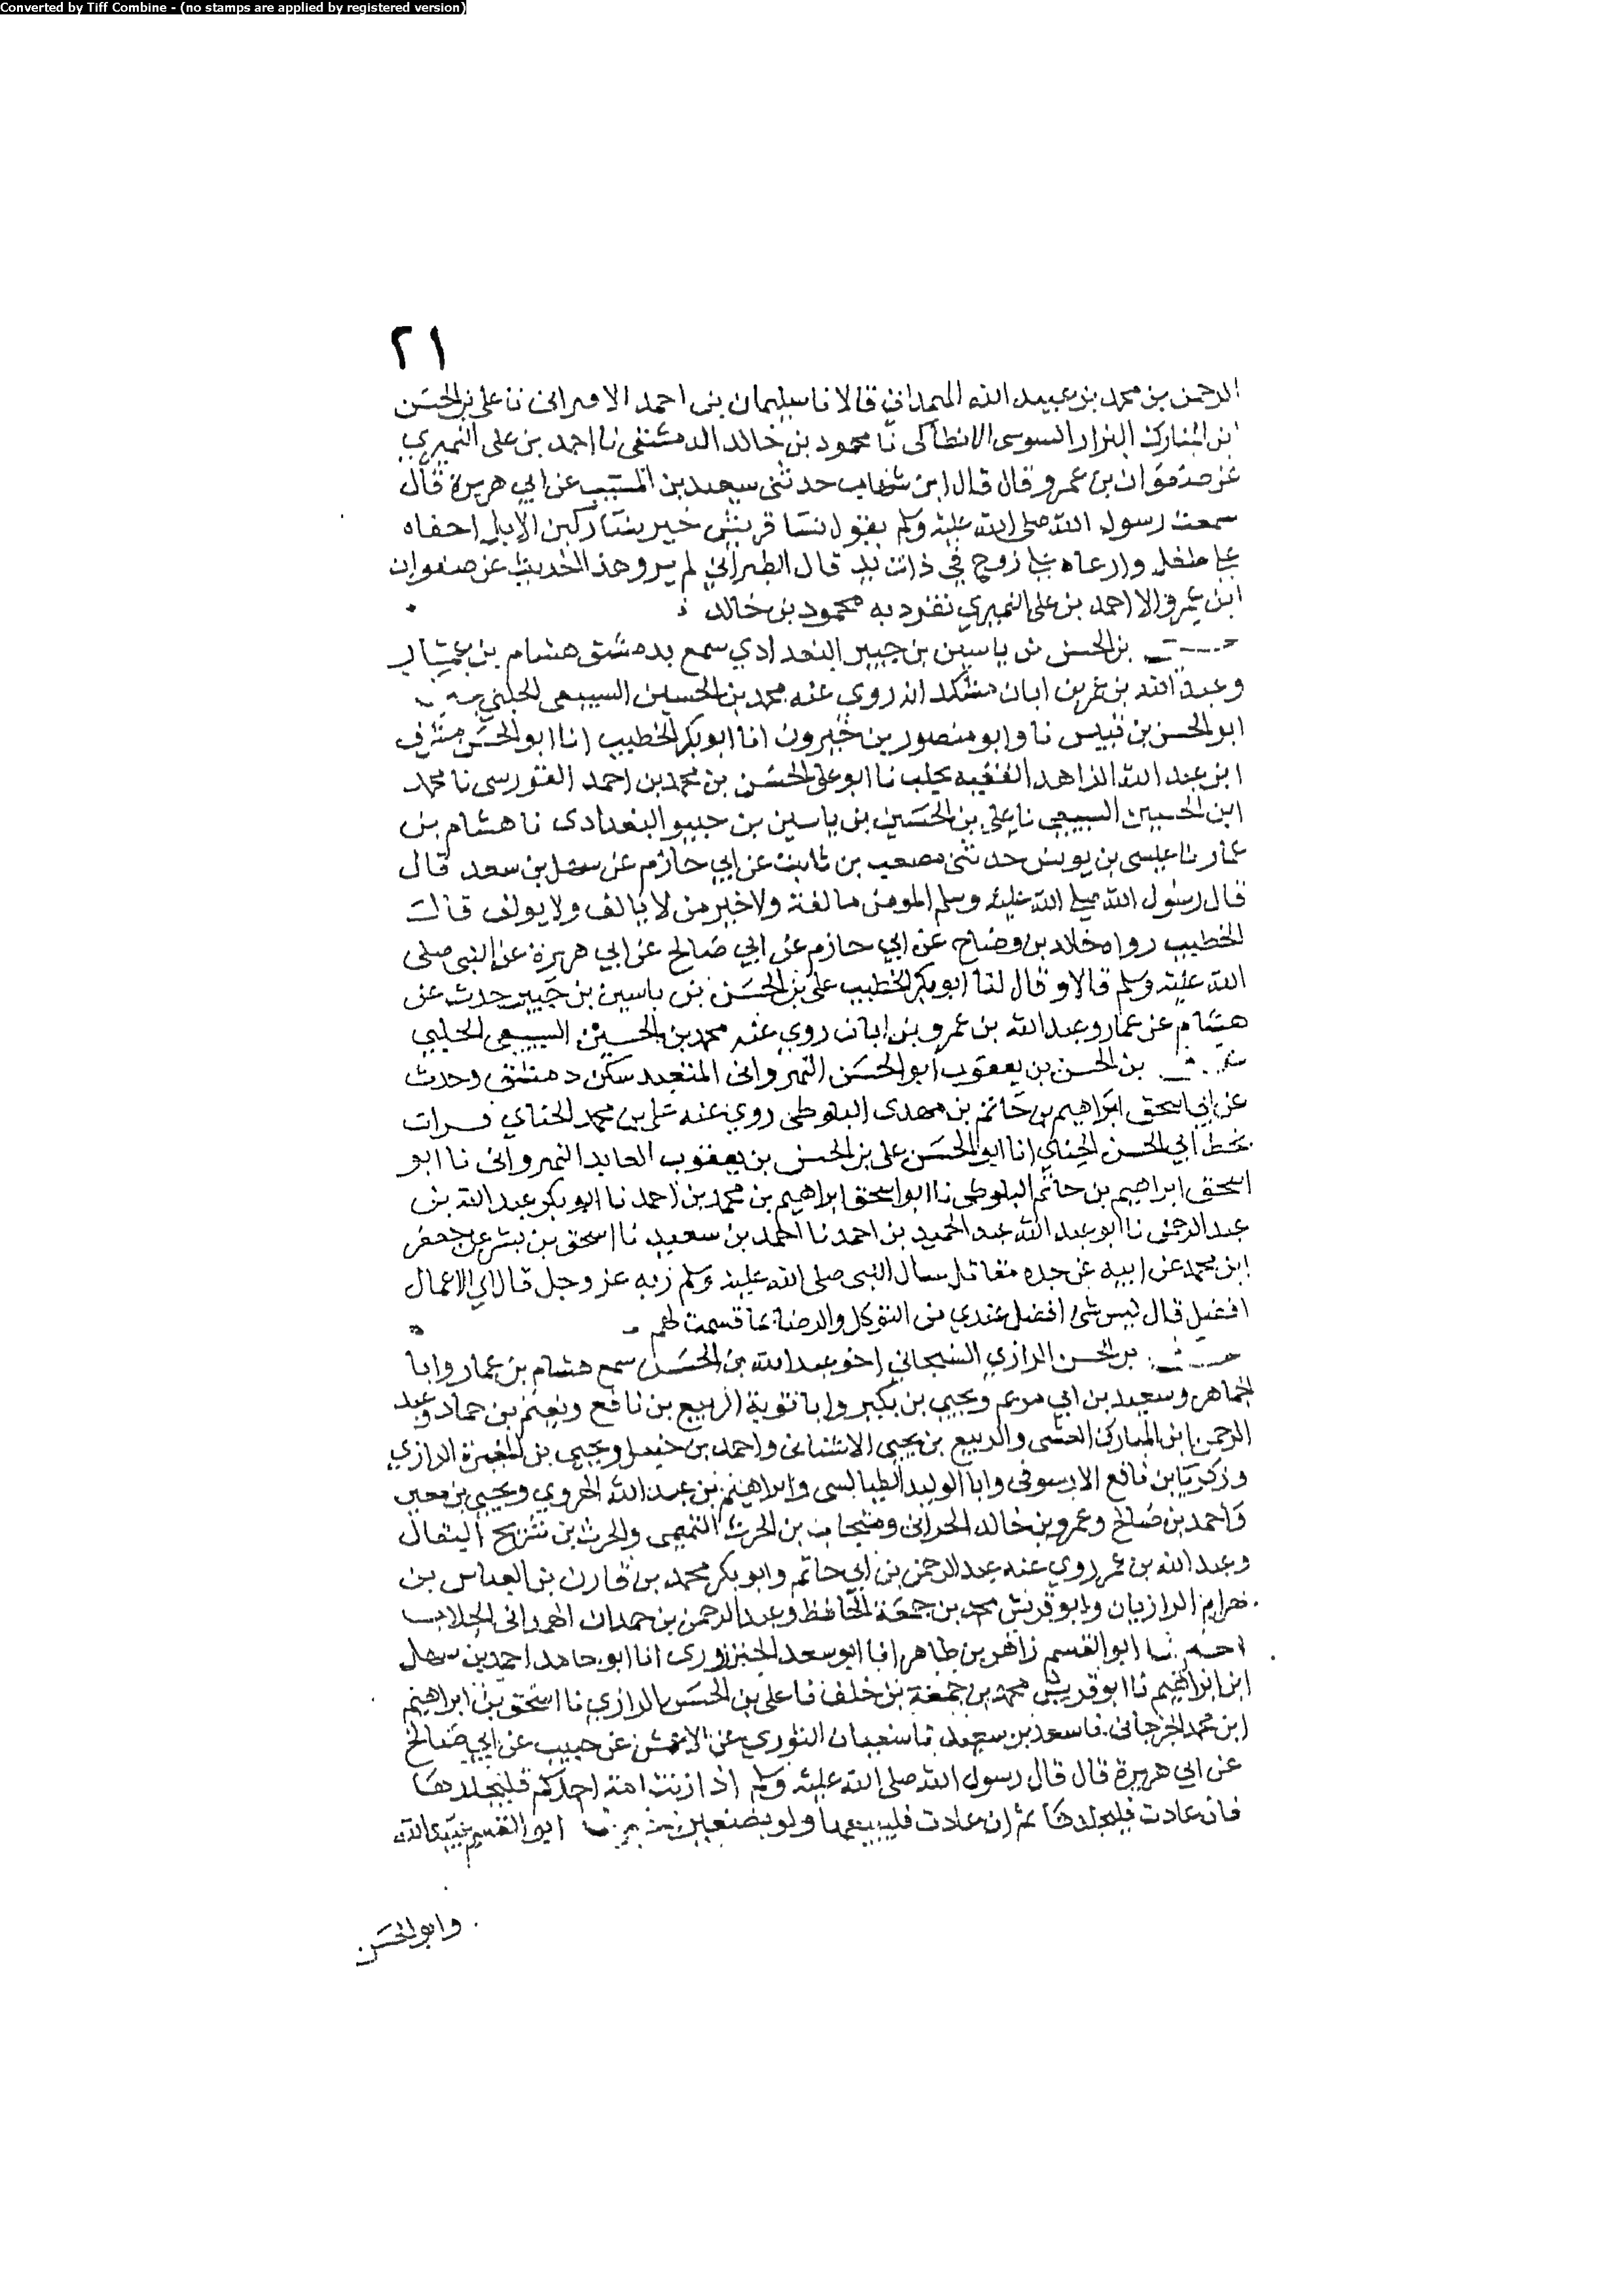 Converted by Tiff Combine - (no stamps are applied by registered version)
٢١
الرحمن بن محمد بن عبيد الله الهمداني قالا نا سليمان بن احمد الاميراني نا علي بن الحسن
ابن المبارك البزار السوسي الانطاكي نا محمود بن خالد الدمشقي نا احمد بن علي النميري
عن صفوان بن عمرو قال قال ابن شهاب حدثني سعيد بن المسيب عن ابي هريرة قال
سمعت رسول الله صلى الله عليه وسلم يقول نسا قريش خير نسا ركبن الابل احناه
على طفل وارعاه على زوج في ذات يد قال الطبراني لم يرو هذا الحديث عن صفوان
ابن عمرو الا احمد بن علي النميري تفرد به محمود بن خالد
بن الحسن بن ياسين بن جبير البغدادي سمع بدمشق هشام بن عمار
وعبد الله بن عمر بن ابان مشكدانه روى عنه محمد بن الحسين السبيعي الحلبي
ابو الحسن بن قبيس نا وابو منصور بن خيرون انا ابو بكر الخطيب انا ابو الحسن مشرف
ابن عبد الله الزاهد الفقيه بحلب نا ابو علي الحسن بن محمد بن احمد القورسي نا محمد
ابن الحسين السبيعي نا علي بن الحسين بن ياسين بن جبير البغدادي نا هشام بن
عمار نا عيسى بن يونس حدثني مصعب بن ثابت عن ابي حازم عن سهل بن سعد قال
قال رسول الله صلى الله عليه وسلم المومن مالفة ولا خير من لا يالف ولا يولف قال
الخطيب رواه خالد بن وضاح عن ابي حازم عن ابي صالح عن ابي هريرة عن النبي صلى
الله عليه وسلم قالا وقال لنا ابو بكر الخطيب علي بن الحسن بن ياسين بن جبير حدث عن
هشام عن عمار وعبد الله بن عمرو بن ابان روي عنه محمد بن الحسين السبيعي الحلبي
بن الحسن بن يعقوب ابو الحسن النهرواني المتعبد سكن دمشق وحدث
عن ابي اسحق ابراهيم بن حاتم بن مهدي البلوطي روي عنه علي بن محمد الحناي قرات
بخط ابي الحسن الحناي انا ابو الحسن علي بن الحسن بن يعقوب العابد النهرواني نا ابو
اسحق ابراهيم بن حاتم البلوطي نا ابو اسحق ابراهيم بن محمد بن احمد نا ابو بكر عبد الله بن
عبد الرحمن نا ابو عبد الله عبد الحميد بن احمد نا احمد بن سعيد نا اسحق بن بشر عن جعفر
ابن محمد عن ابيه عن جده مقاتل سال النبي صلى الله عليه وسلم ربه عز وجل قال اي الاعمال
افضل قال ليس شي افضل عندي من التوكل والرضا بما قسمت لهم
بن الحسن الرازي السنجاني اخو عبد الله بن الحسن سمع هشام بن عمار وابا
الجماهر وسعيد بن ابي مريم ويحيى بن بكير وابا توبة الربيع بن نافع ونعيم بن حماد وعبد
الرحمن بن المبارك العيشي والربيع بن يحيى الاشناني واحمد بن حنبل ويحيى بن المغيرة الرازي
وزكريا بن نافع الارسوفي وابا الوليد الطيالسي وابراهيم بن عبد الله الهروي ويحيى بن معين
واحمد بن صالح وعمرو بن خالد الحراني ومنجاب بن الحرث التميمي والحرث بن شريح النقال
وعبد الله بن عمر روي عنه عبد الرحمن بن ابي حاتم وابو بكر محمد بن قارن بن العباس بن
نهرام الرازيان وابو قريش محمد بن جمعة الحافظ وعبد الرحمن بن حمدان الهمداني الجلاب
ابو القسم زاهر بن طاهر انا ابو سعد الجنزرودي انا ابو حامد احمد بن سهل
ابن ابراهيم نا ابو قريش محمد بن جمعة بن خلف نا علي بن الحسن الرازي نا اسحق بن ابراهيم
ابن محمد الجرجاني نا سعد بن سعيد نا سفيان الثوري عن الاعمش عن حبيب عن ابي صالح
عن ابي هريرة قال قال رسول الله صلى الله عليه وسلم اذا زنت امة احدكم فليجلدها
فان عادت فليجلدها ثم ان عادت فليبيعها ولو بضفير ابو القسم عبد الله
وابو الحسن